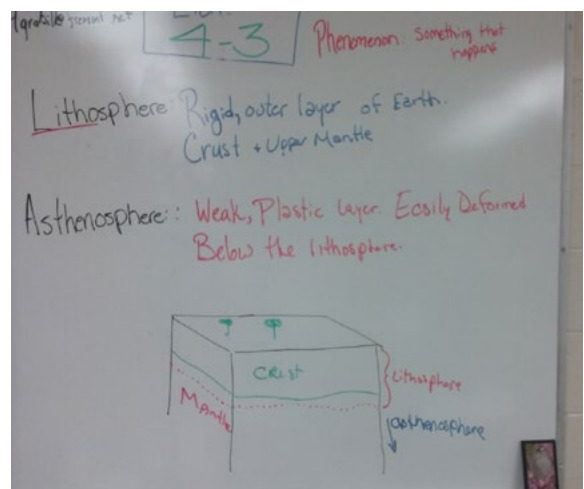 4-3
Phenomenon: Something that
happens
Lithosphere: Rigid, outer layer of Earth.
Crust + Upper Mantle
Asthenosphere:: Weak, Plastic layer. Easily Deformed
Below the lithosphere.
Crust
Mantle
Lithosphere
asthenosphere